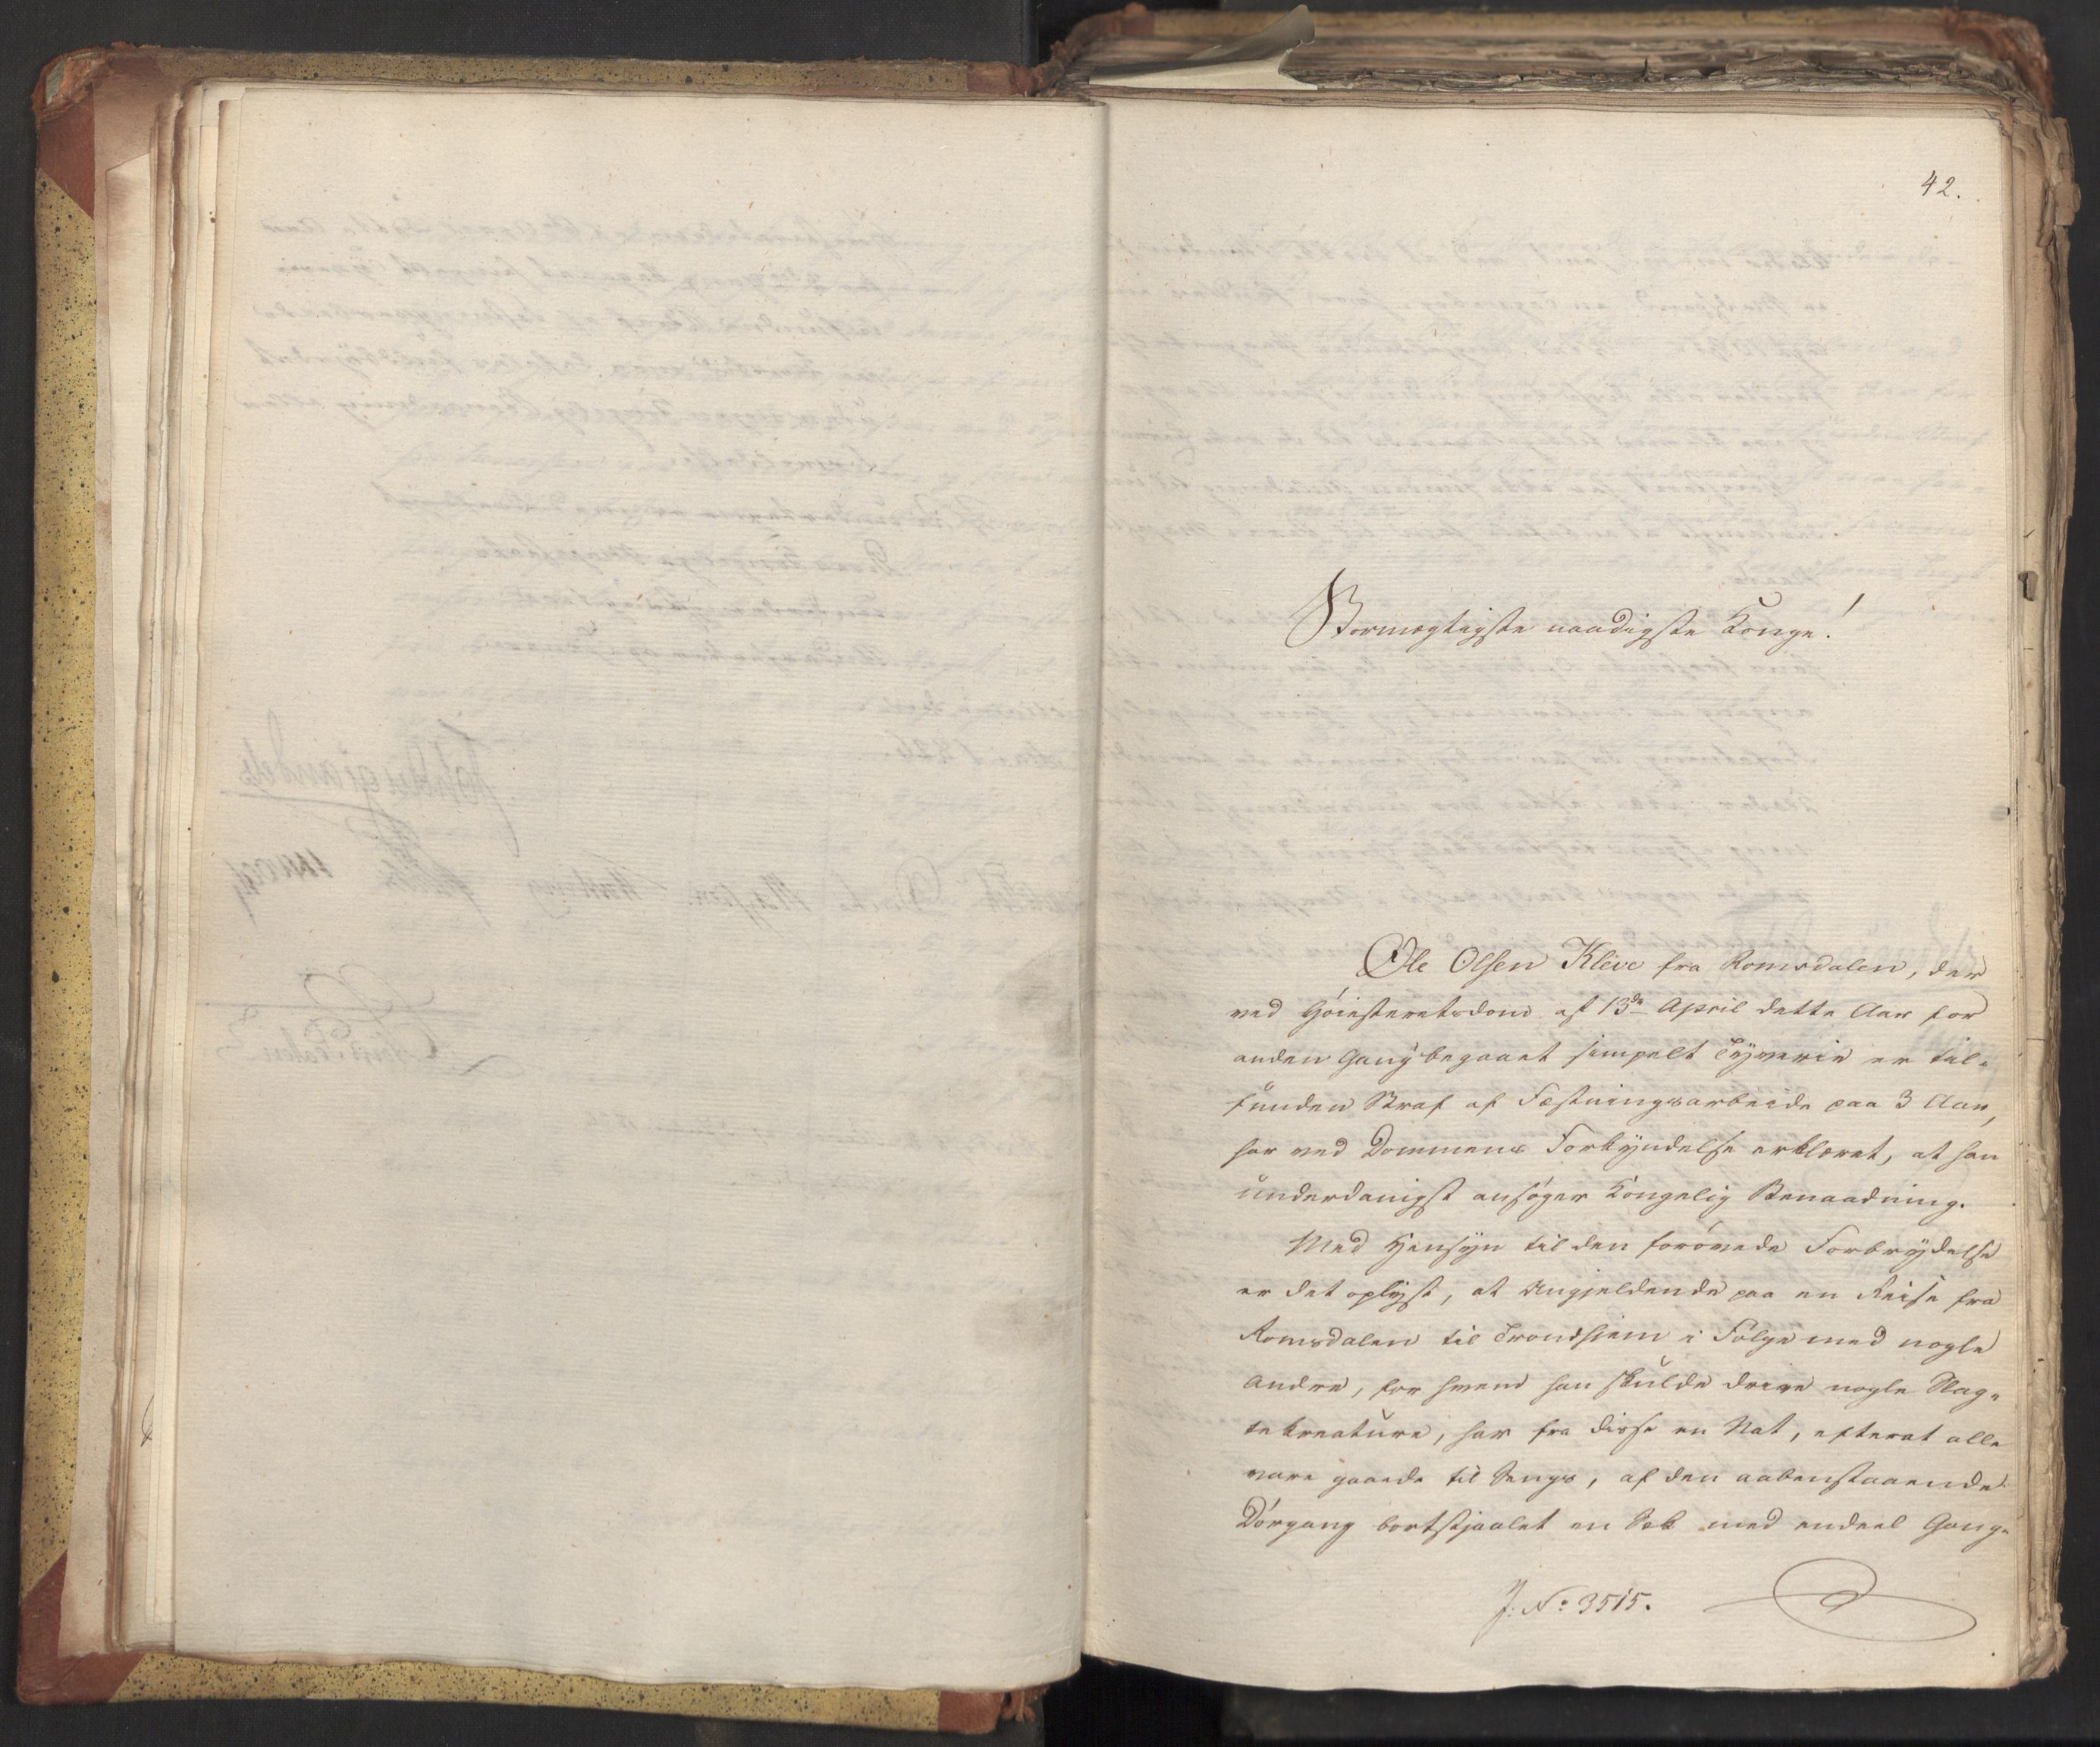 42.
Stormægtigste naadigste Konge!
Ole Olsen Kleve fra Romsdalen, der
ved Höiesteretsdom af 13de April dette Aar for
anden Gang begaaet simpelt Tyverie er til-
funden Straf af Fæstningsarbeide paa 3 Aar,
har ved Dommens Forkyndelse erklæret, at han
underdanigst ansöger Kongelig Benaadning.
Med Hensyn til den forövede Forbrydelse
er det oplyst, at Angjeldende paa en Reise fra
Romsdalen til Trondhjem i Fölge med nogle
andre, for hvem han skulde drive nogle Slag-
tekreature, har fra disse en Nat, efterat alle
vare gaaede til Sengs, af den aabenstaaende
Dörgang bortstjaalet en Sæk med endeel Gang-
J: No 3515.